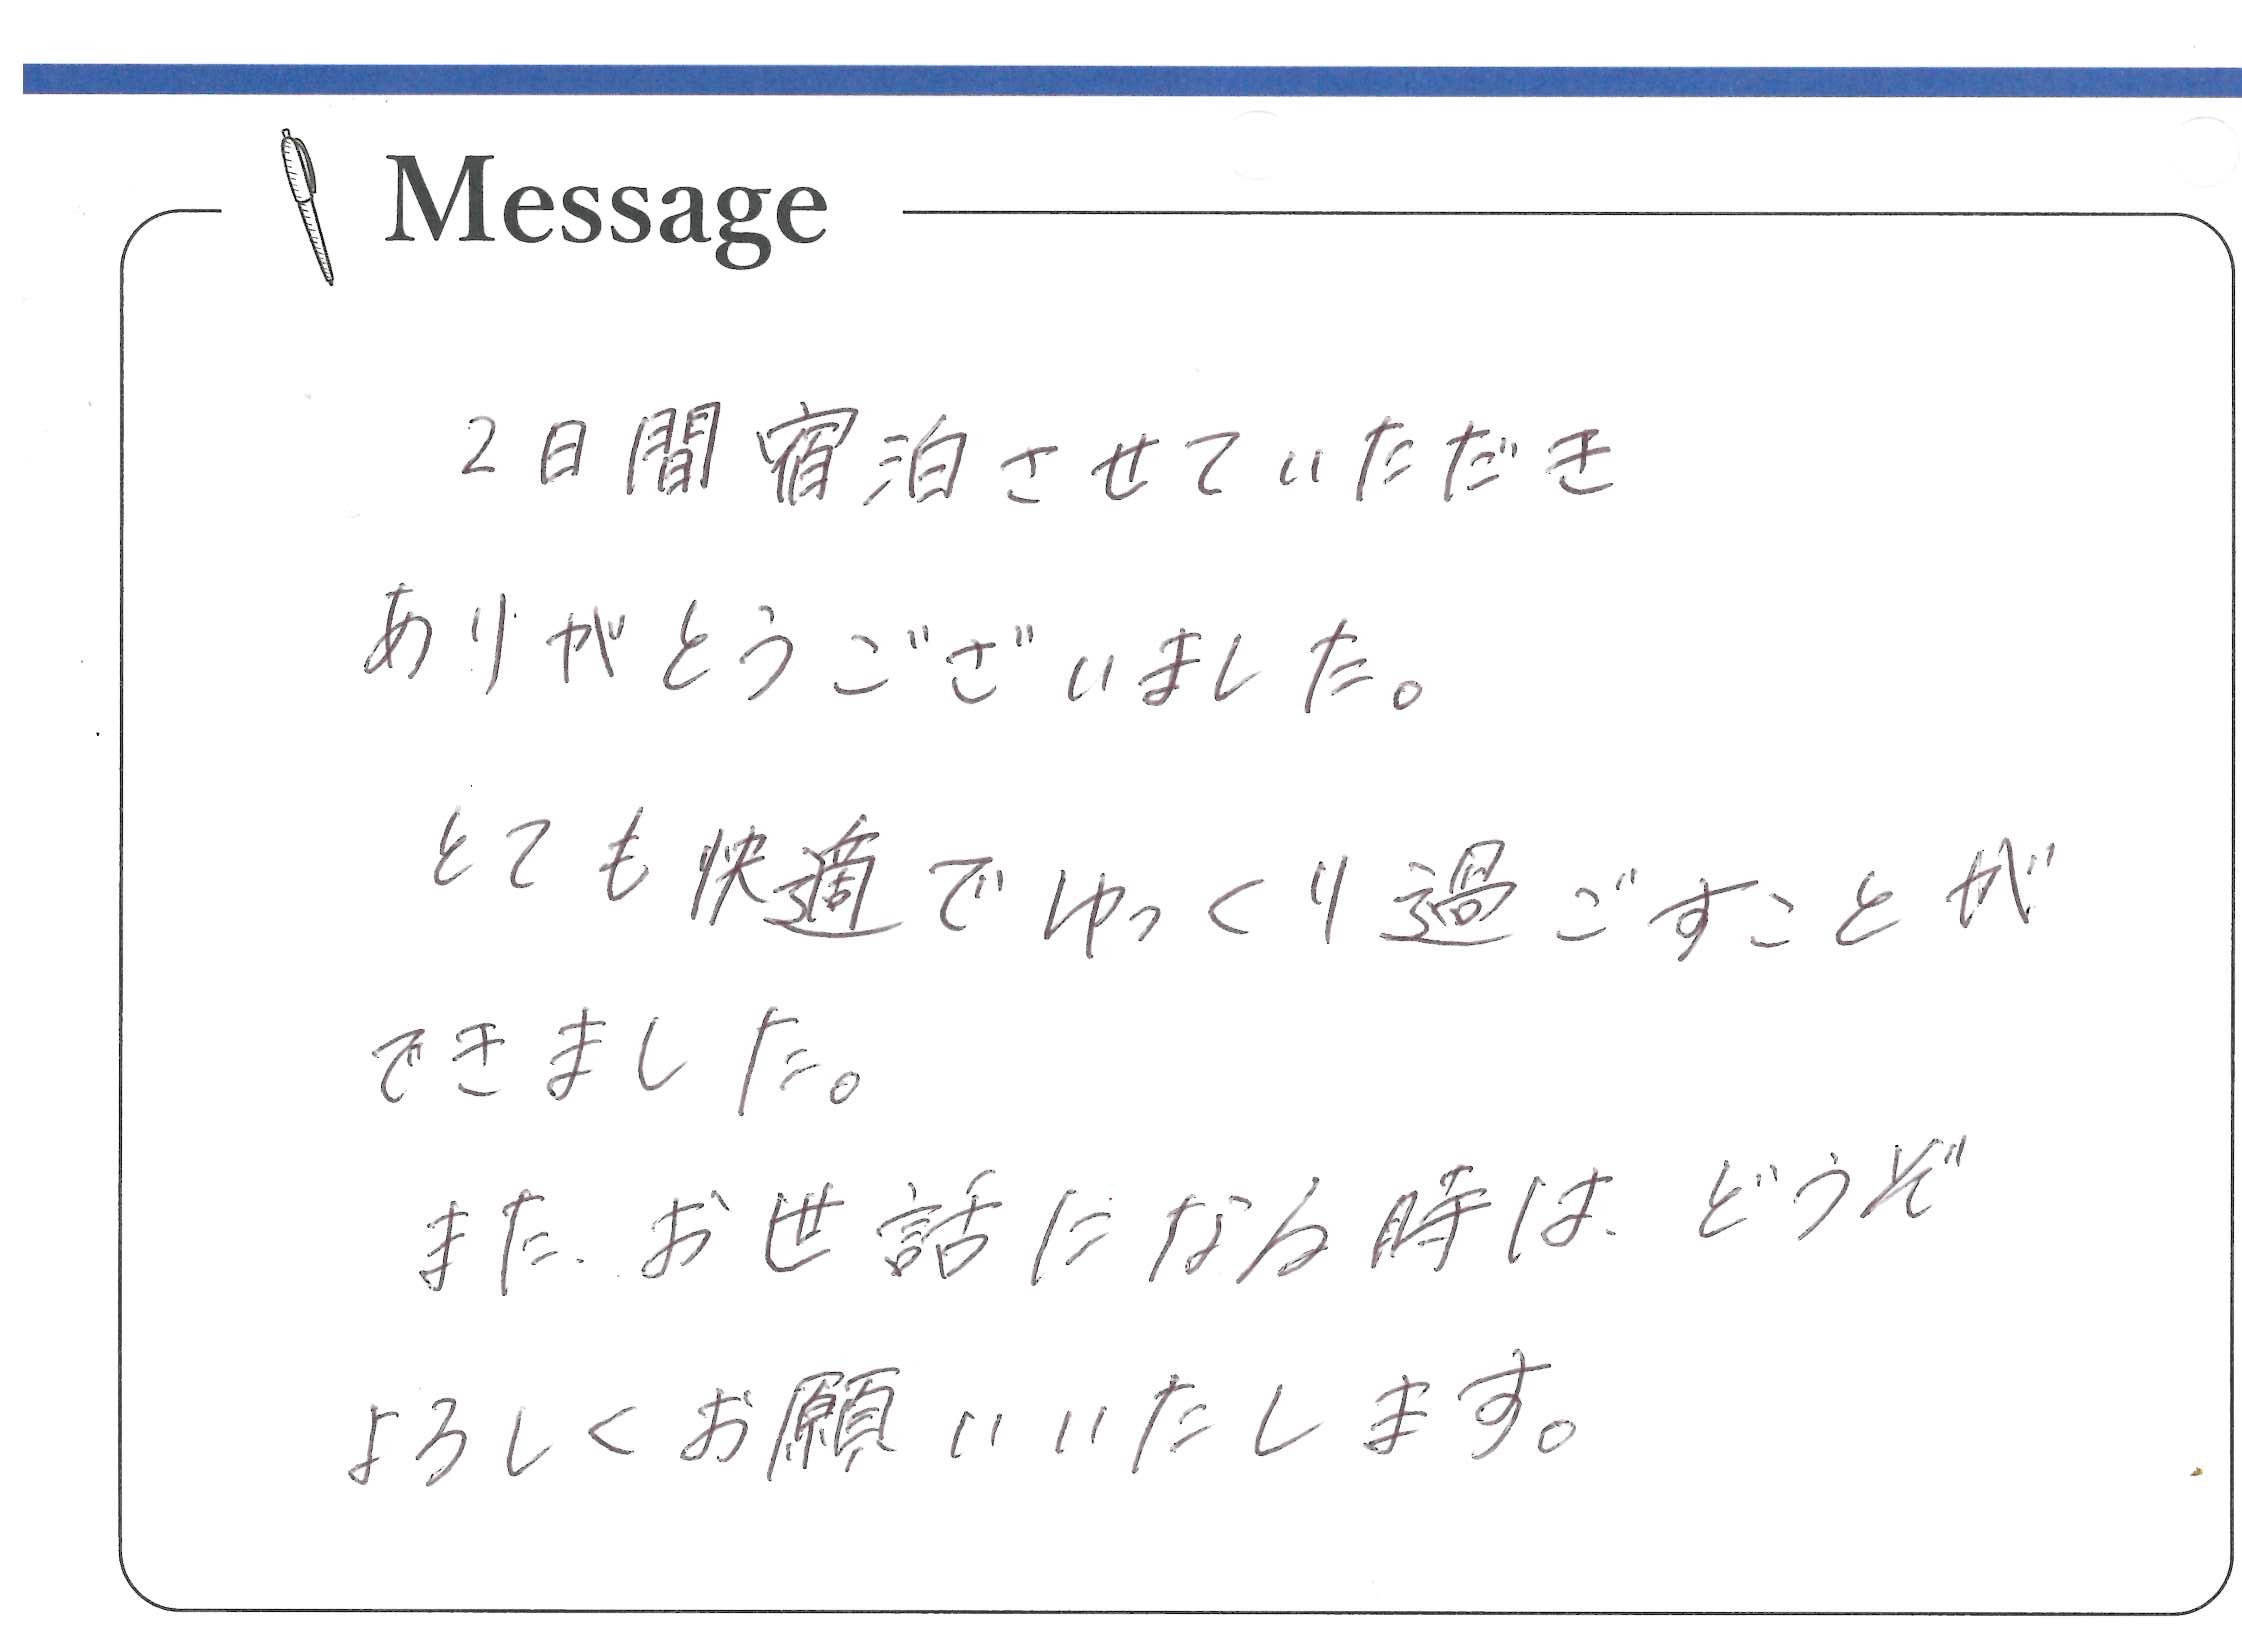 Message
2日間宿泊させていただき
ありがとうございました。
とても快適でゆっくり過ごすことが
できました。
また、お世話になる時は、どうぞ
よろしくお願いいたします。